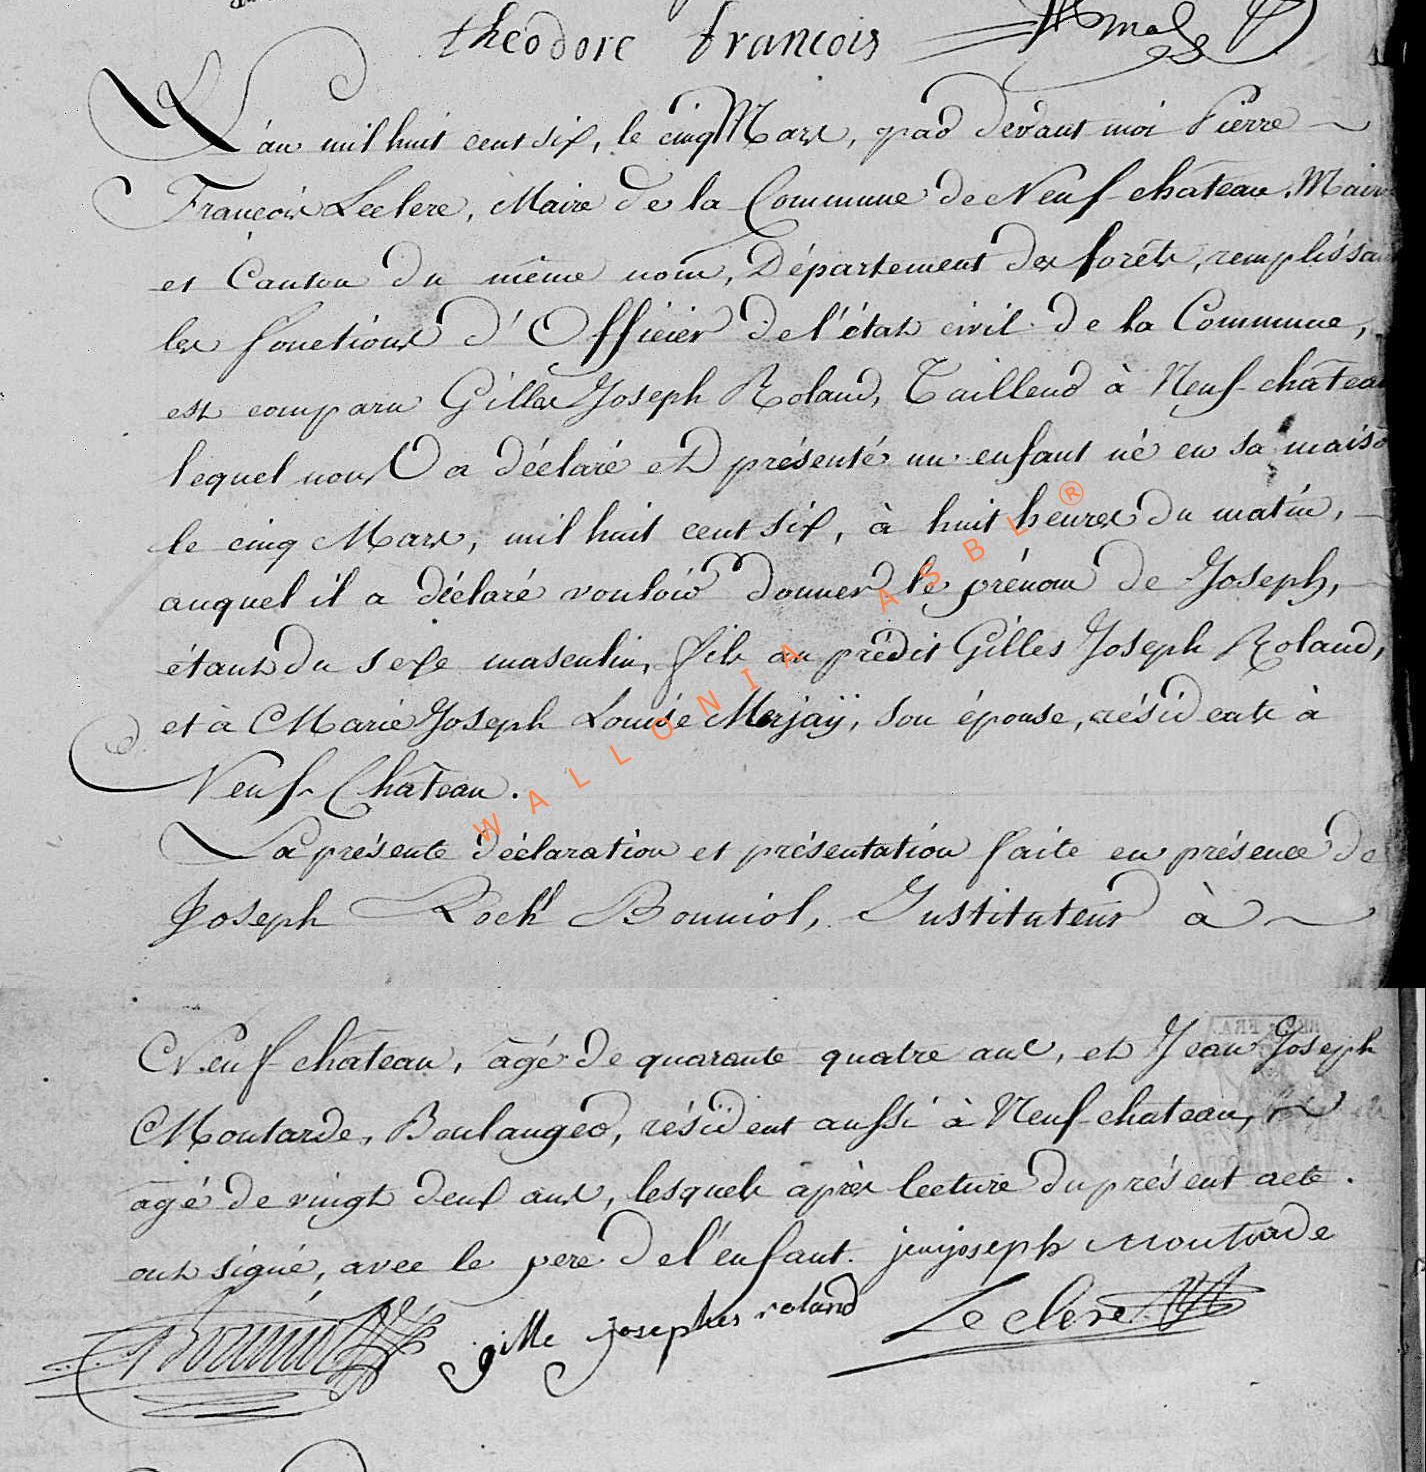 théodore francois
L'an mil huit cent six, le cinq Mars, par devant moi Pierre
François Leclere, Maire de la Commune de Neuf-château, Mairie
et Canton du même nom, Département des forêts, remplissant
les fonctions d'Officier de l'état civil de la Commune,
est comparu Gilles Joseph Roland, Tailleur à Neuf-château
lequel nous a déclaré et présenté un enfant né en sa maison
le cinq Mars, mil huit cent six, à huit heures du matin,
auquel il a déclaré vouloir donner le prénom de Joseph,
étant du sexe masculin, fils au prédit Gilles Joseph Roland,
et à Marie Joseph Louise Merjaÿ, son épouse, résidents à
Neuf-Château.
La présente déclaration et présentation faite en présence de
Joseph Roch Bonniol, Instituteur à
Neuf-chateau, âgé de quarante quatre ans, et Jean Joseph
Moutarde, Boulanger, résident aussi à Neuf-chateau,
âgé de vingt deux ans, lesquels après lecture du présent acte.
ont signé, avec le pere de l'enfant. jeanjoseph moutarde
Bonniol gille josephes roland Leclere
WALLONIA ASBL ®